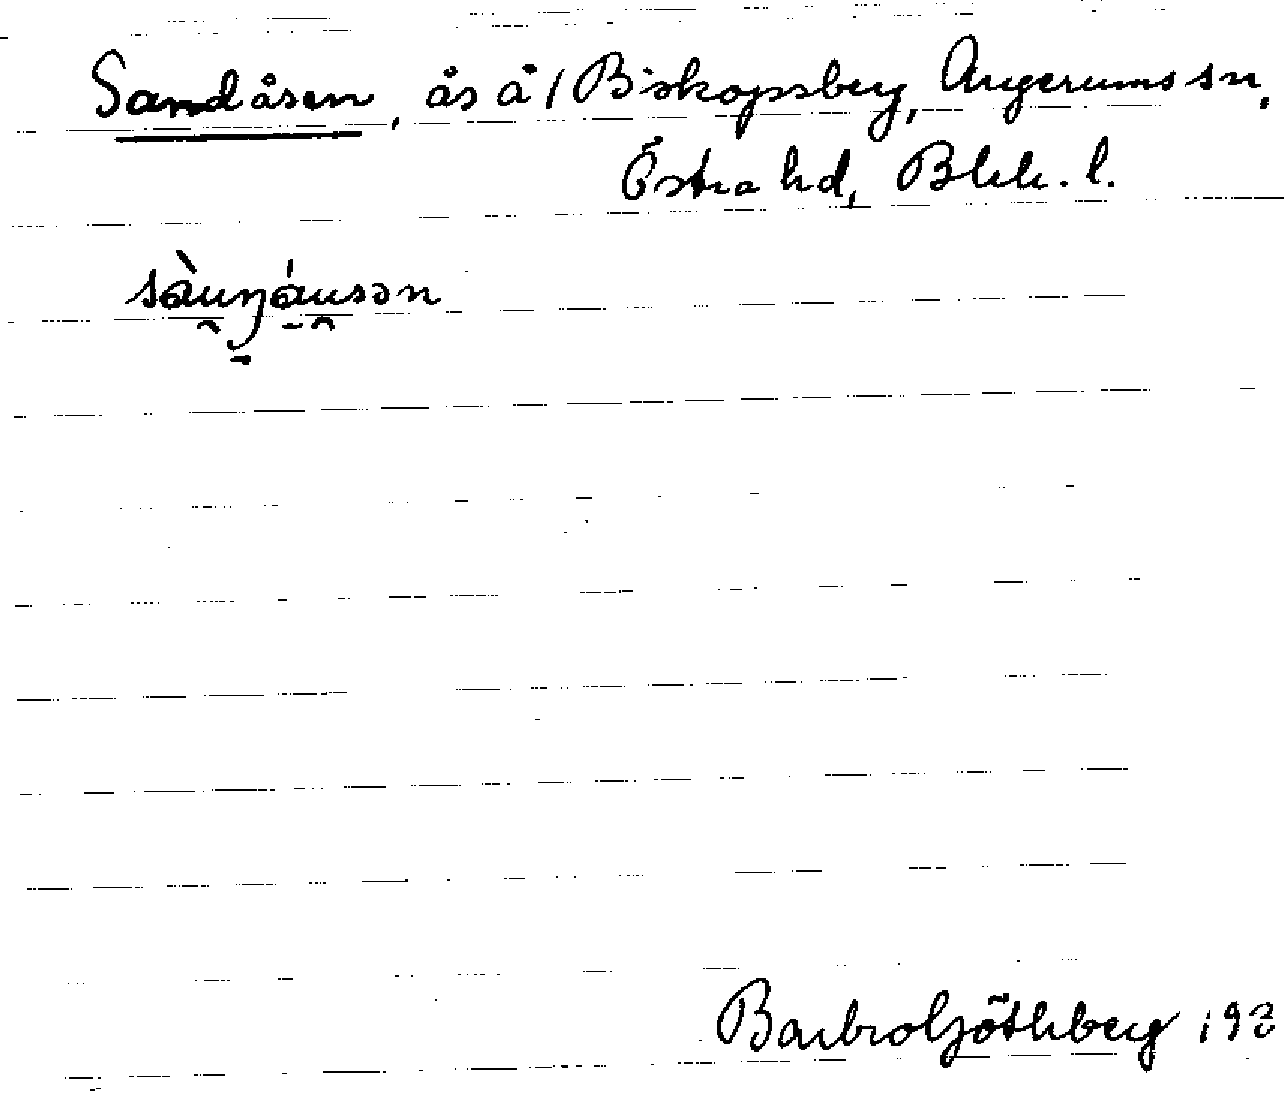 Sandåsen, ås å / Biskopsberg, Augerums sn,
Östra hd, Blek. l.
sàuŋáusən
Barbro Göthberg 193